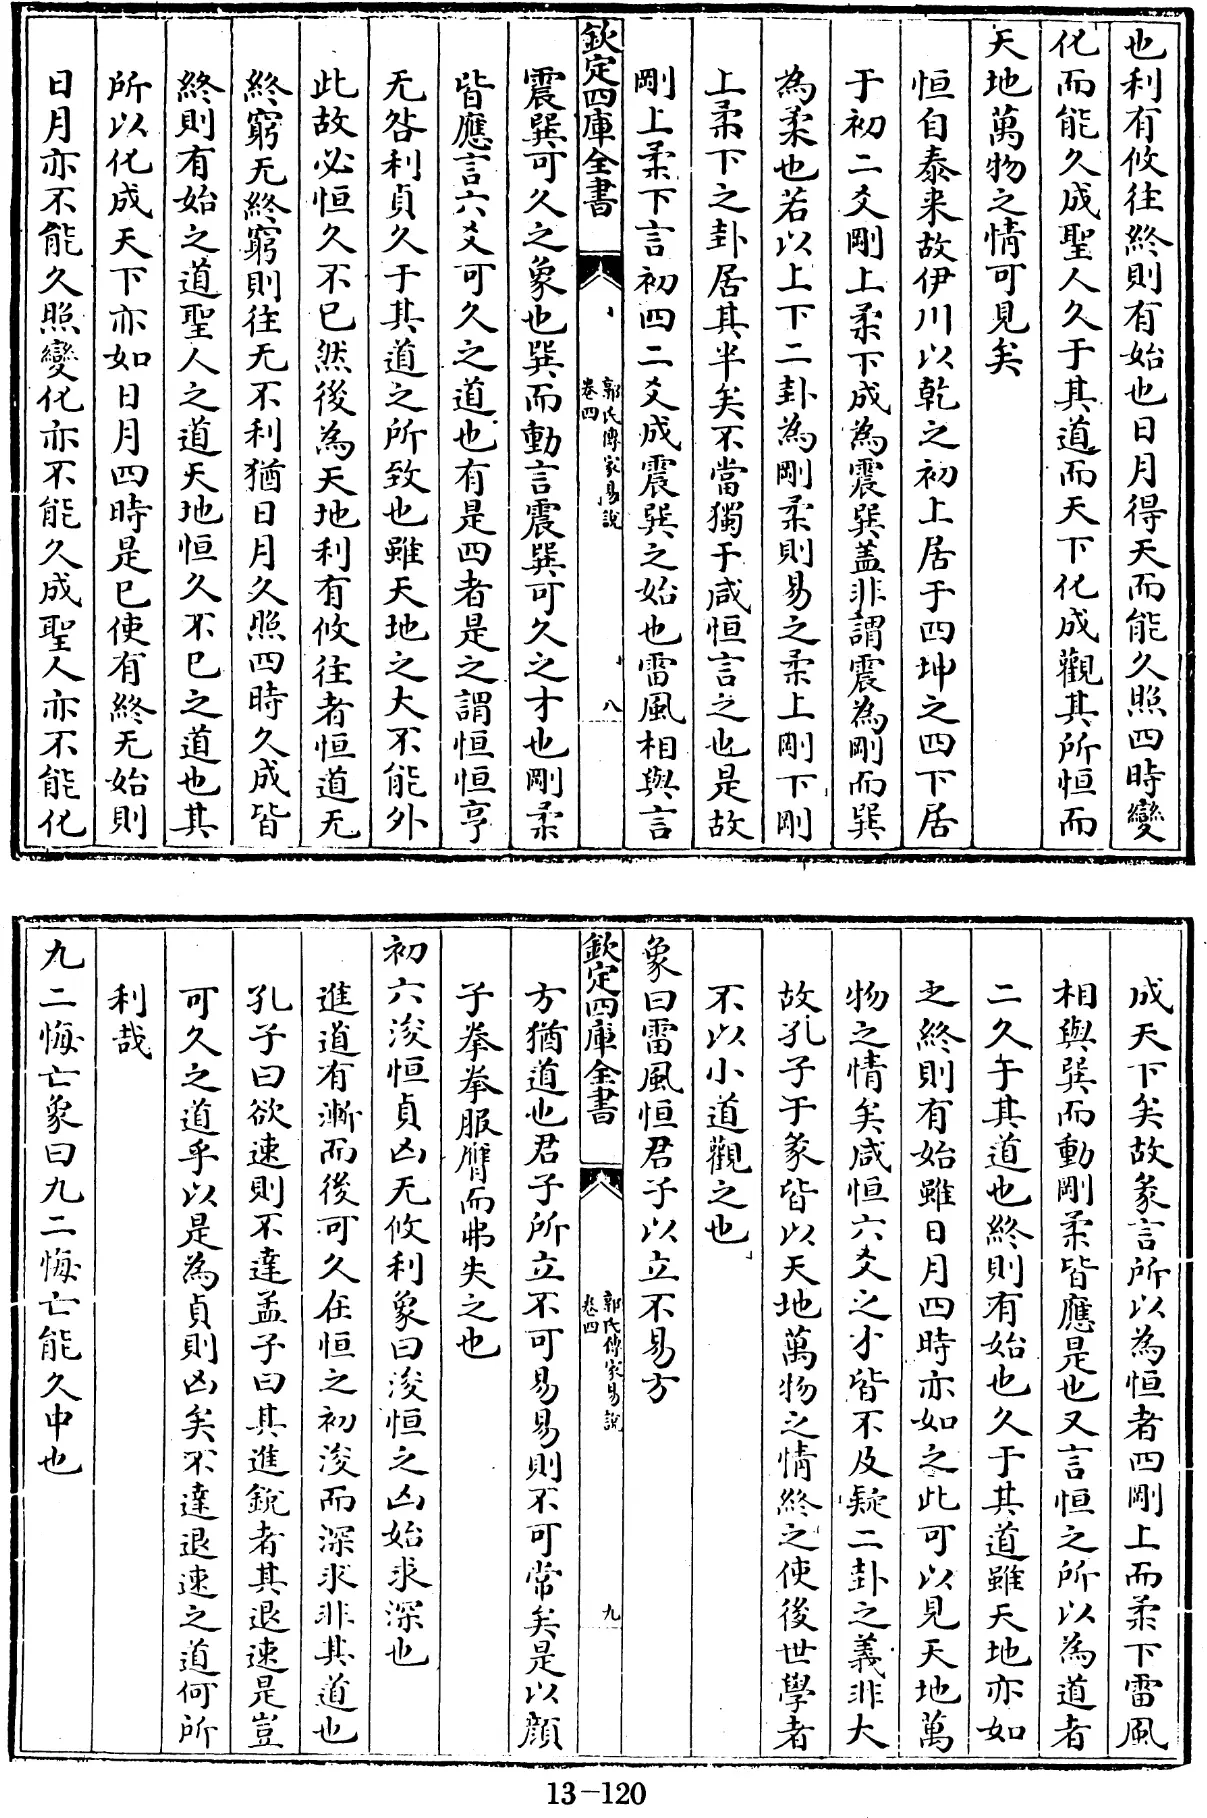 也利有攸往終則有始也日月得天而能久照四時變
化而能久成聖人久于其道而天下化成觀其所恒而
天地萬物之情可見矣
恒自泰来故伊川以乾之初上居于四坤之四下居
于初二爻剛上柔下成為震巽盖非謂震為剛而巽
為柔也若以上下二卦為剛柔則易之柔上剛下剛
上柔下之卦居其半矣不當獨于咸恒言之也是故
剛上柔下言初四二爻成震巽之始也雷風相與言
欽定四庫全書
郭氏傳家易說
卷四
八
震巽可久之象也巽而動言震巽可久之才也剛柔
皆應言六爻可久之道也有是四者是之謂恒恒亨
无咎利貞久于其道之所致也雖天地之大不能外
此故必恒久不已然後為天地利有攸往者恒道无
終窮无終窮則往无不利猶日月久照四時久成皆
終則有始之道聖人之道天地恒久不已之道也其
所以化成天下亦如日月四時是已使有終无始則
日月亦不能久照變化亦不能久成聖人亦不能化
成天下矣故彖言所以為恒者四剛上而柔下雷風
相與巽而動剛柔皆應是也又言恒之所以為道者
二久于其道也終則有始也久于其道雖天地亦如
之終則有始雖日月四時亦如之此可以見天地萬
物之情矣咸恒六爻之才皆不及疑二卦之義非大
故孔子于彖皆以天地萬物之情終之使後世學者
不以小道觀之也
象曰雷風恒君子以立不易方
欽定四庫全書
郭氏傳家易說
卷四
九
方猶道也君子所立不可易易則不可常矣是以顔
子拳拳服膺而弗失之也
初六浚恒貞凶无攸利象曰浚恒之凶始求深也
進道有漸而後可久在恒之初浚而深求非其道也
孔子曰欲速則不達孟子曰其進銳者其退速是豈
可久之道乎以是為貞則凶矣不達退速之道何所
利哉
九二悔亡象曰九二悔亡能久中也
13-120